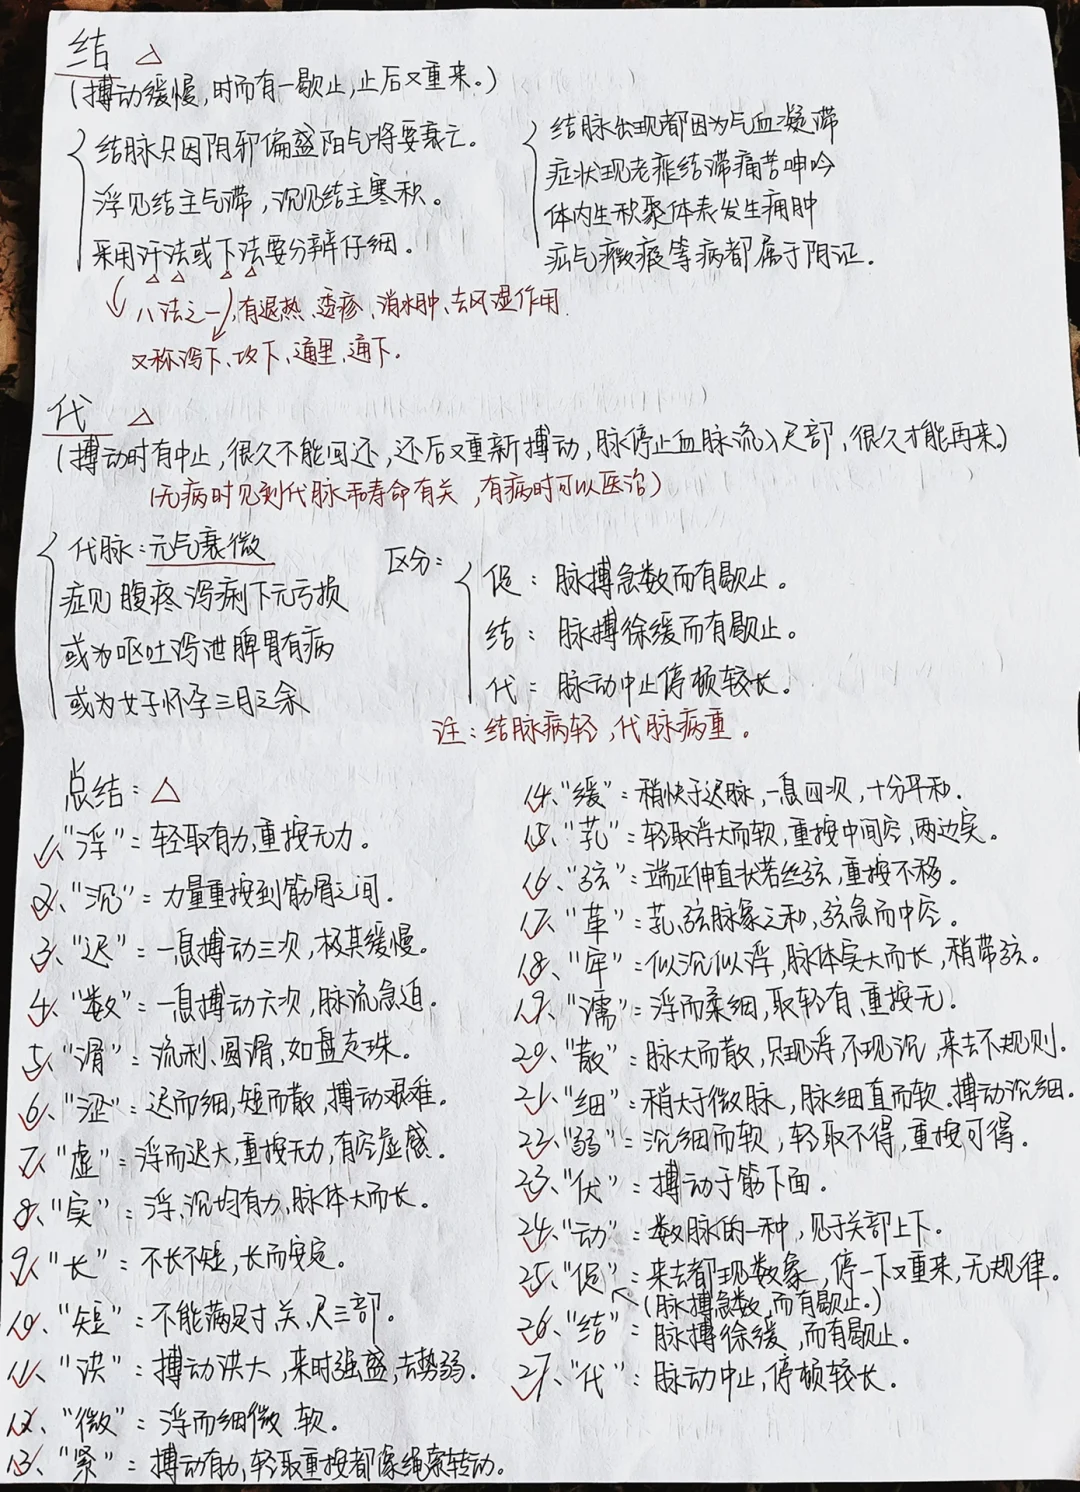 结 △
(搏动缓慢,时而有一歇止,止后又重来。)
结脉只因阴邪偏盛阳气将要衰亡。
浮见结主气滞,沉见结主寒积。
采用汗法或下法要分辨仔细.
△ △ △ △
结脉出现都因为气血凝滞
症状现老痰结滞痛苦呻吟
体内生积聚体表发生痈肿
疝气癥瘕等病都属于阴证.
八法之一,有退热、透疹、消水肿、去风湿作用.
又称泻下、攻下、通里、通下.
代 △
(搏动时有中止,很久不能回还,还后又重新搏动,脉停止血脉流入尺部,很久才能再来。)
(无病时见到代脉和寿命有关,有病时可以医治)
代脉:元气衰微
症见腹疼泻痢下元亏损
或为呕吐泻泄脾胃有病
或为女子怀孕三月之余
区分:
促:脉搏急数而有歇止。
结:脉搏徐缓而有歇止。
代:脉动中止停顿较长。
注:结脉病轻,代脉病重。
总结:△
1、"浮":轻取有力,重按无力.
2、"沉":力量重按到筋骨之间.
3、"迟":一息搏动三次,极其缓慢。
4、"数":一息搏动六次,脉流急迫.
5、"滑":流利、圆滑,如盘走珠.
6、"涩":迟而细,短而散,搏动艰难.
7、"虚":浮而迟大,重按无力,有空虚感.
8、"实":浮、沉均有力,脉体大而长.
9、"长":不长不短,长而安定。
10、"短":不能满足寸、关、尺三部.
11、"洪":搏动洪大,来时强盛,去势弱.
12、"微":浮而细微 软.
13、"紧":搏动有力,轻取重按都像绳索转动。
14、"缓":稍快于迟脉,一息四次,十分平和.
15、"芤":轻取浮大而软,重按中间空,两边实。
16、"弦":端正伸直状若丝弦,重按不移.
17、"革":芤、弦脉象之和,弦急而中空.
18、"牢":似沉似浮,脉体实大而长,稍带弦.
19、"濡":浮而柔细,取轻有、重按无.
20、"散":脉大而散,只现浮,不现沉,来去不规则.
21、"细":稍大于微脉,脉细直而软.搏动沉细.
22、"弱":沉细而软,轻取不得,重按可得.
23、"伏":搏动于筋下面.
24、"动":数脉的一种,见于关部上下.
25、"促":来去都现数象,停一下又重来,无规律。
(脉搏急数,而有歇止.)
26、"结":脉搏徐缓,而有歇止.
27、"代":脉动中止,停顿较长.